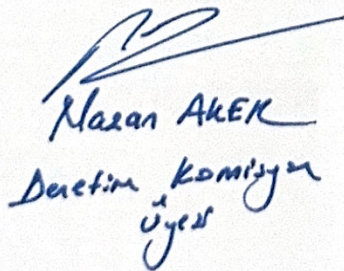 Hazan AKER
Denetim Komisyon
Üyesi